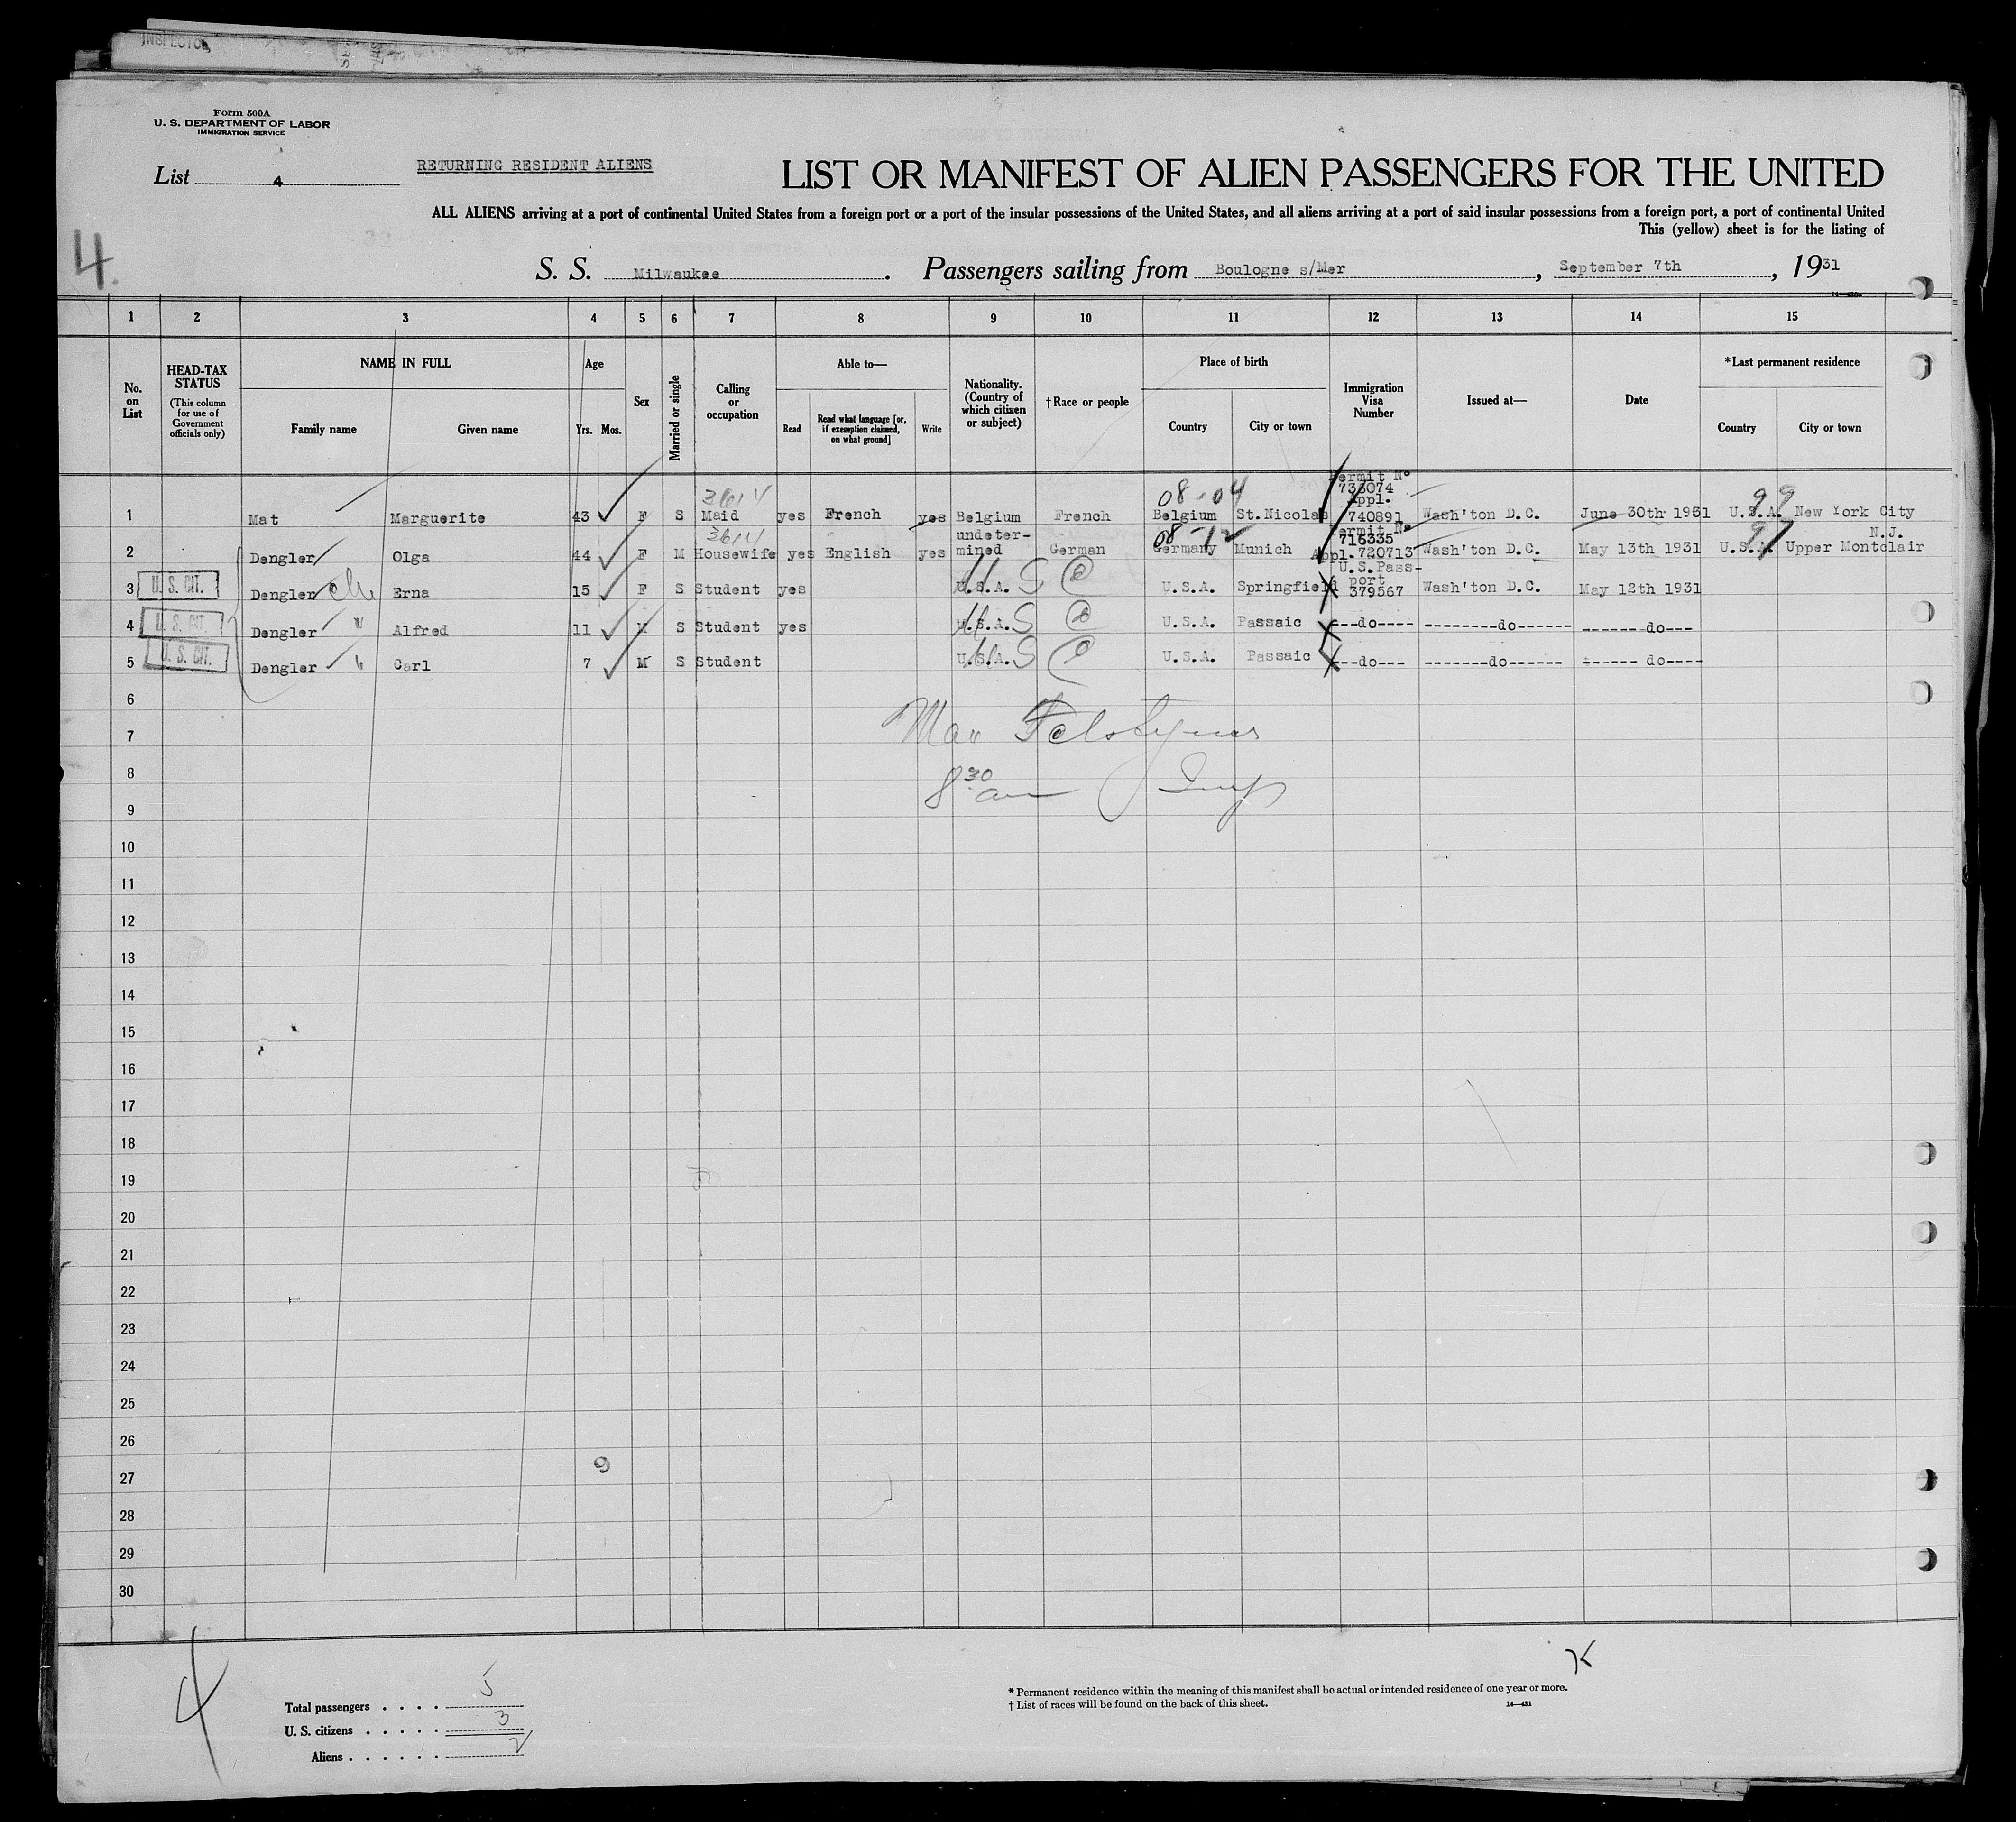 INSPECTOR,
Form 500A
U. S. DEPARTMENT OF LABOR
IMMIGRATION SERVICE
List 4
RETURNING RESIDENT ALIENS
LIST OR MANIFEST OF ALIEN PASSENGERS FOR THE UNITED
ALL ALIENS arriving at a port of continental United States from a foreign port or a port of the insular possessions of the United States, and all aliens arriving at a port of said insular possessions from a foreign port, a port of continental United
This (yellow) sheet is for the listing of
4.
S. S. Milwaukee. Passengers sailing from Boulogne s/Mer, September 7th, 1931
1 2 3 4 5 6 7 8 9 10 11 12 13 14 15
No. on List
HEAD-TAX STATUS
(This column for use of Government officials only)
NAME IN FULL
Family name Given name
Age
Yrs. Mos.
Sex
Married or single
Calling or occupation
Able to—
Read
Read what language [or, if exemption claimed, on what ground]
Write
Nationality. (Country of which citizen or subject)
† Race or people
Place of birth
Country City or town
Immigration Visa Number
Issued at—
Date
* Last permanent residence
Country City or town
3614 08-04 Permit No 733074 Appl. 99
1 Mat Marguerite 43 F S Maid yes French yes Belgium French Belgium St.Nicolas 740891 Wash'ton D.C. June 30th 1931 U.S.A. New York City
3614 undeter- 08-12 Permit No 716335 97 N.J.
2 Dengler Olga 44 F M Housewife yes English yes mined German Germany Munich Appl.720713 Wash'ton D.C. May 13th 1931 U.S.A. Upper Montclair
U.S.Pass-
port
3 U. S. CIT. Dengler Erna 15 F S Student yes U.S.A. U S U.S.A. Springfield 379567 Wash'ton D.C. May 12th 1931
4 U. S. CIT. Dengler " Alfred 11 M S Student yes U.S.A. U S U.S.A. Passaic ---do---- --------do------ -------do---
5 U. S. CIT. Dengler " Carl 7 M S Student U.S.A. U S U.S.A. Passaic ---do--- -------do------ ------ do----
6
7
8 8 30 am Insp
9
10
11
12
13
14
15
16
17
18
19
20
21
22
23
24
25
26
27 9
28
29
30
4
Total passengers . . . . 5
U. S. citizens . . . . . 3
Aliens . . . . . . 2
* Permanent residence within the meaning of this manifest shall be actual or intended residence of one year or more.
† List of races will be found on the back of this sheet.
14—431
K